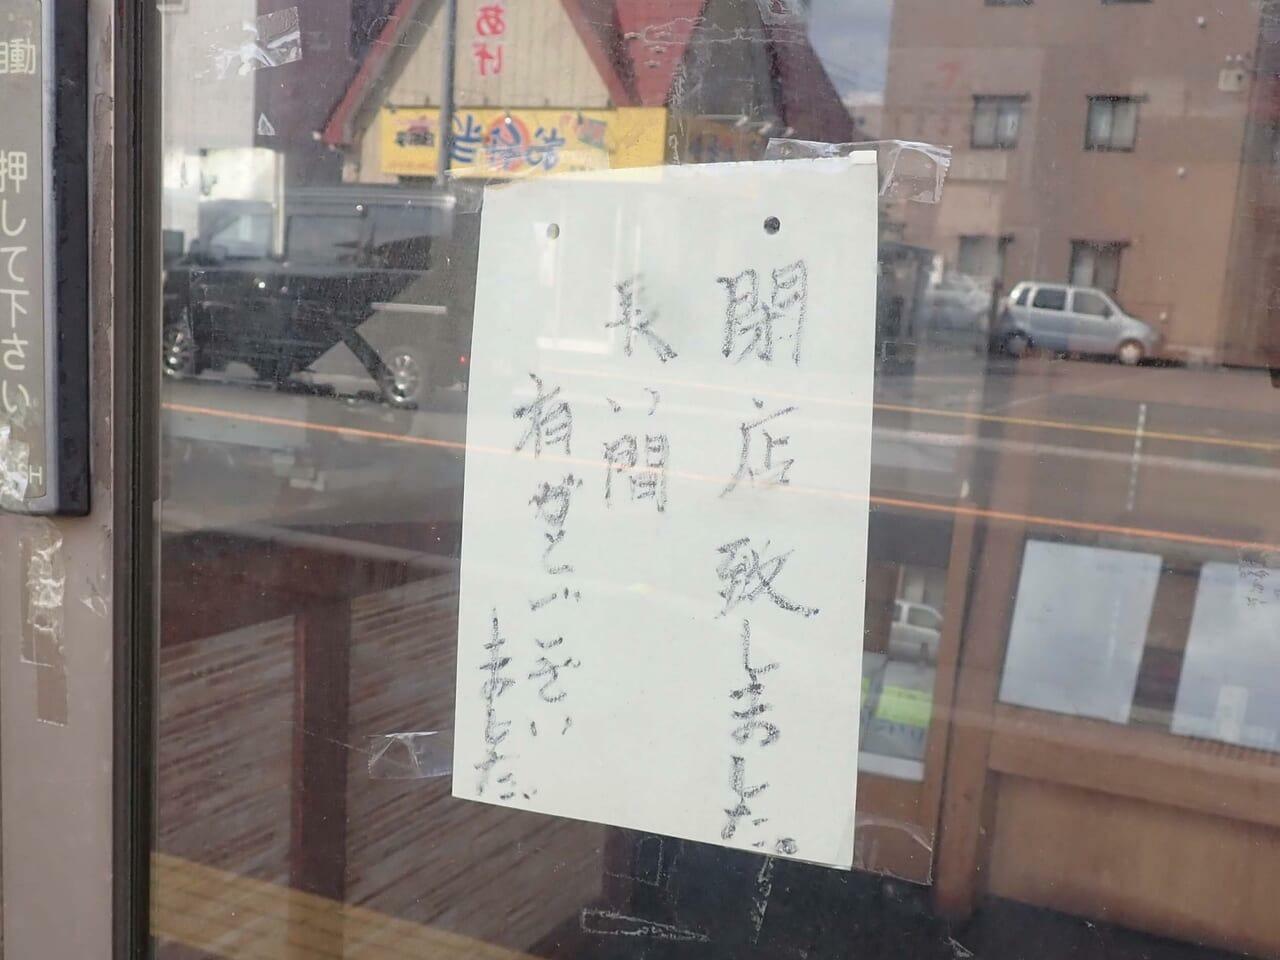 閉店致しました。
長い間
有がとうござい
ました
自動
押して下さい
あげ